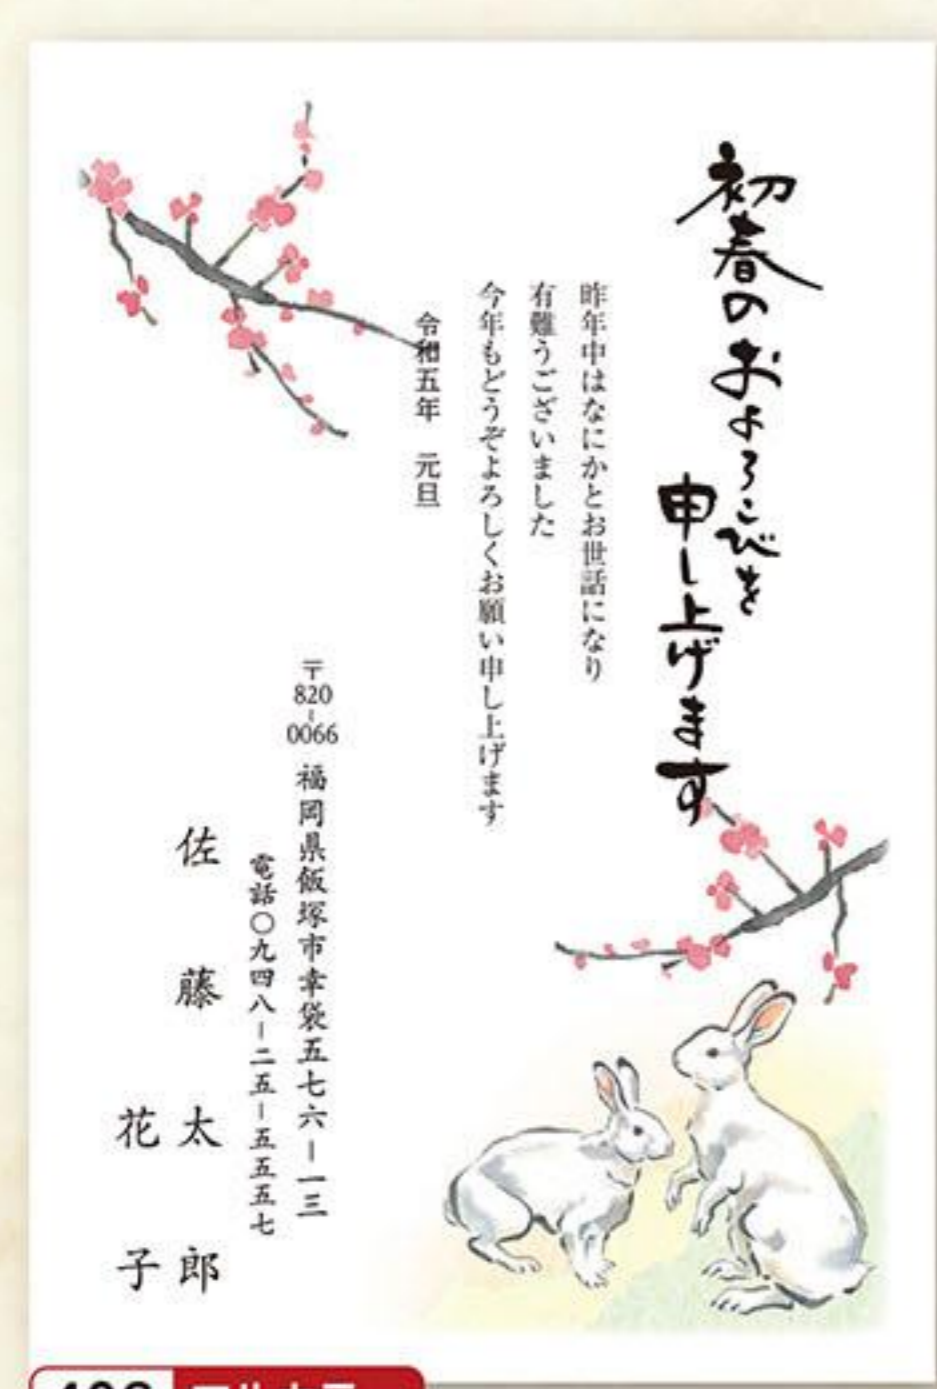 初春のおよろこびを
申し上げます
昨年中はなにかとお世話になり
有難うございました
今年もどうぞよろしくお願い申し上げます
令和五年 元旦
〒820-0066 福岡県飯塚市幸袋五七六-一三
電話〇九四八-二五-五五五七
佐藤太郎
花子